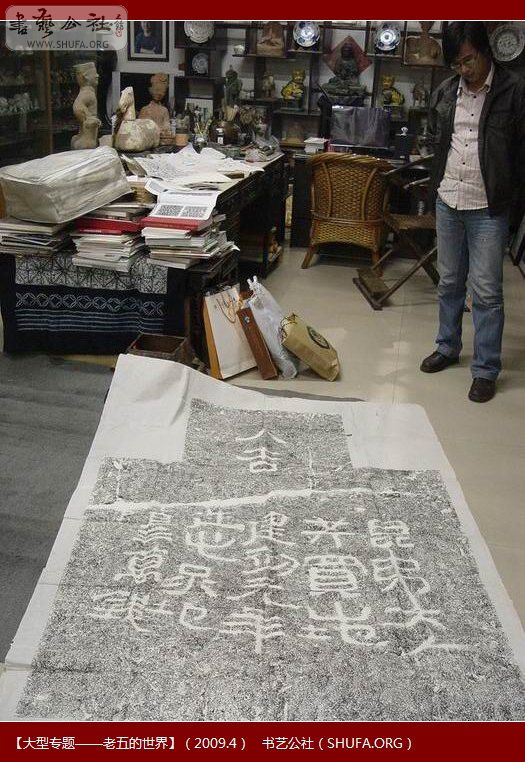 書藝公社
WWW.SHUFA.ORG
大吉
昆弟六人
共買山地
建初元年
造此冢地
直三萬錢
【大型专题——老五的世界】（2009.4） 书艺公社（SHUFA.ORG）